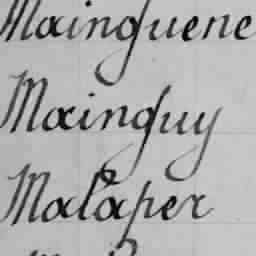 Mainguene
Mainguy
Malaper